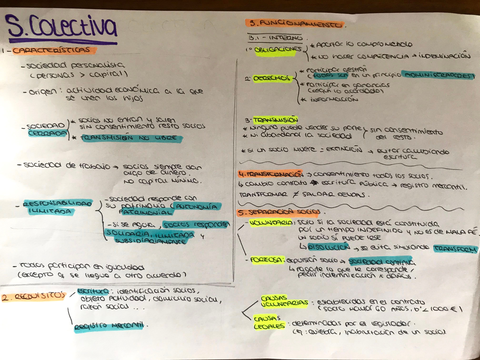 S. COLECTIVA
1- CARACTERÍSTICAS
- SOCIEDAD PERSONALISTA
(PERSONAS > CAPITAL)
- ORIGEN: ACTIVIDAD ECONÓMICA A LA QUE
SE UNEN LOS HIJOS
- SOCIEDAD
CERRADA
* SOCIOS NO ENTRAN Y SALEN
SIN CONSENTIMIENTO RESTO SOCIOS
* TRANSMISIÓN NO LIBRE
- SOCIEDAD DE TRABAJO → SOCIOS SIEMPRE DAN
ALGO DE DINERO,
NO CAPITAL MÍNIMO.
- RESPONSABILIDAD
ILIMITADA
* SOCIEDAD RESPONDE CON
SU PATRIMONIO (AUTONOMÍA
PATRIMONIAL)
- SI SE AGOTA, SOCIOS RESPONDEN
SOLIDARIA, ILIMITADA Y
SUBSIDIARIAMENTE
- TODOS PARTICIPAN EN IGUALDAD
(EXCEPTO Q SE LLEGUE A OTRO ACUERDO)
2. REQUISITOS
ESCRITURA: IDENTIFICACIÓN SOCIOS,
OBJETO ACTIVIDAD, DOMICILIO SOCIAL,
RAZÓN SOCIAL...
REGISTRO MERCANTIL.
3. FUNCIONAMIENTO
3.1 - INTERNO
1- OBLIGACIONES
* APORTAR LO COMPROMETIDO
* NO HACER COMPETENCIA → INDEMNIZACIÓN
2. DERECHOS
* PARTICIPAR GESTIÓN
EN UN PRINCIPIO ADMINISTRADORES
* PARTICIPAR EN GANANCIAS
* INFORMACIÓN
3. TRANSMISIÓN
* NINGUNO PUEDE VENDER SU PARTE
NI ABANDONAR LA SOCIEDAD
SIN CONSENTIMIENTO
DEL RESTO.
* SI UN SOCIO MUERE = EXTINCIÓN → EVITAR
ESCRITURA
4. TRANSFORMACIÓN → CONSENTIMIENTO TODOS LOS SOCIOS.
↳ CAMBIO CONTRATO → ESCRITURA PÚBLICA → REGISTRO MERCANTIL
TRANSFORMAR ≠ SALDAR DEUDAS.
5. SEPARACIÓN SOCIOS
- VOLUNTARIA: SOLO SI LA SOCIEDAD ESTÁ CONSTITUIDA
POR UN TIEMPO INDEFINIDO Y NO ES DE MALA FÉ
UN SOCIO SÍ PUEDE IRSE
↳ DISOLUCIÓN → SE EVITA SIMULANDO TRANSFORM.
- FORZOSA: EXPULSIÓN SOCIO → SOCIEDAD CONTINÚA
↳ REPARTE LO QUE LE CORRESPONDE/
PEDIR INDEMNIZACIÓN X DAÑOS.
CAUSAS
VOLUNTARIAS → ESTABLECIDAS EN EL CONTRATO
CAUSAS
LEGALES: DETERMINADAS POR EL LEGISLADOR
EJ: QUIEBRA, INHABILITACIÓN DE UN SOCIO